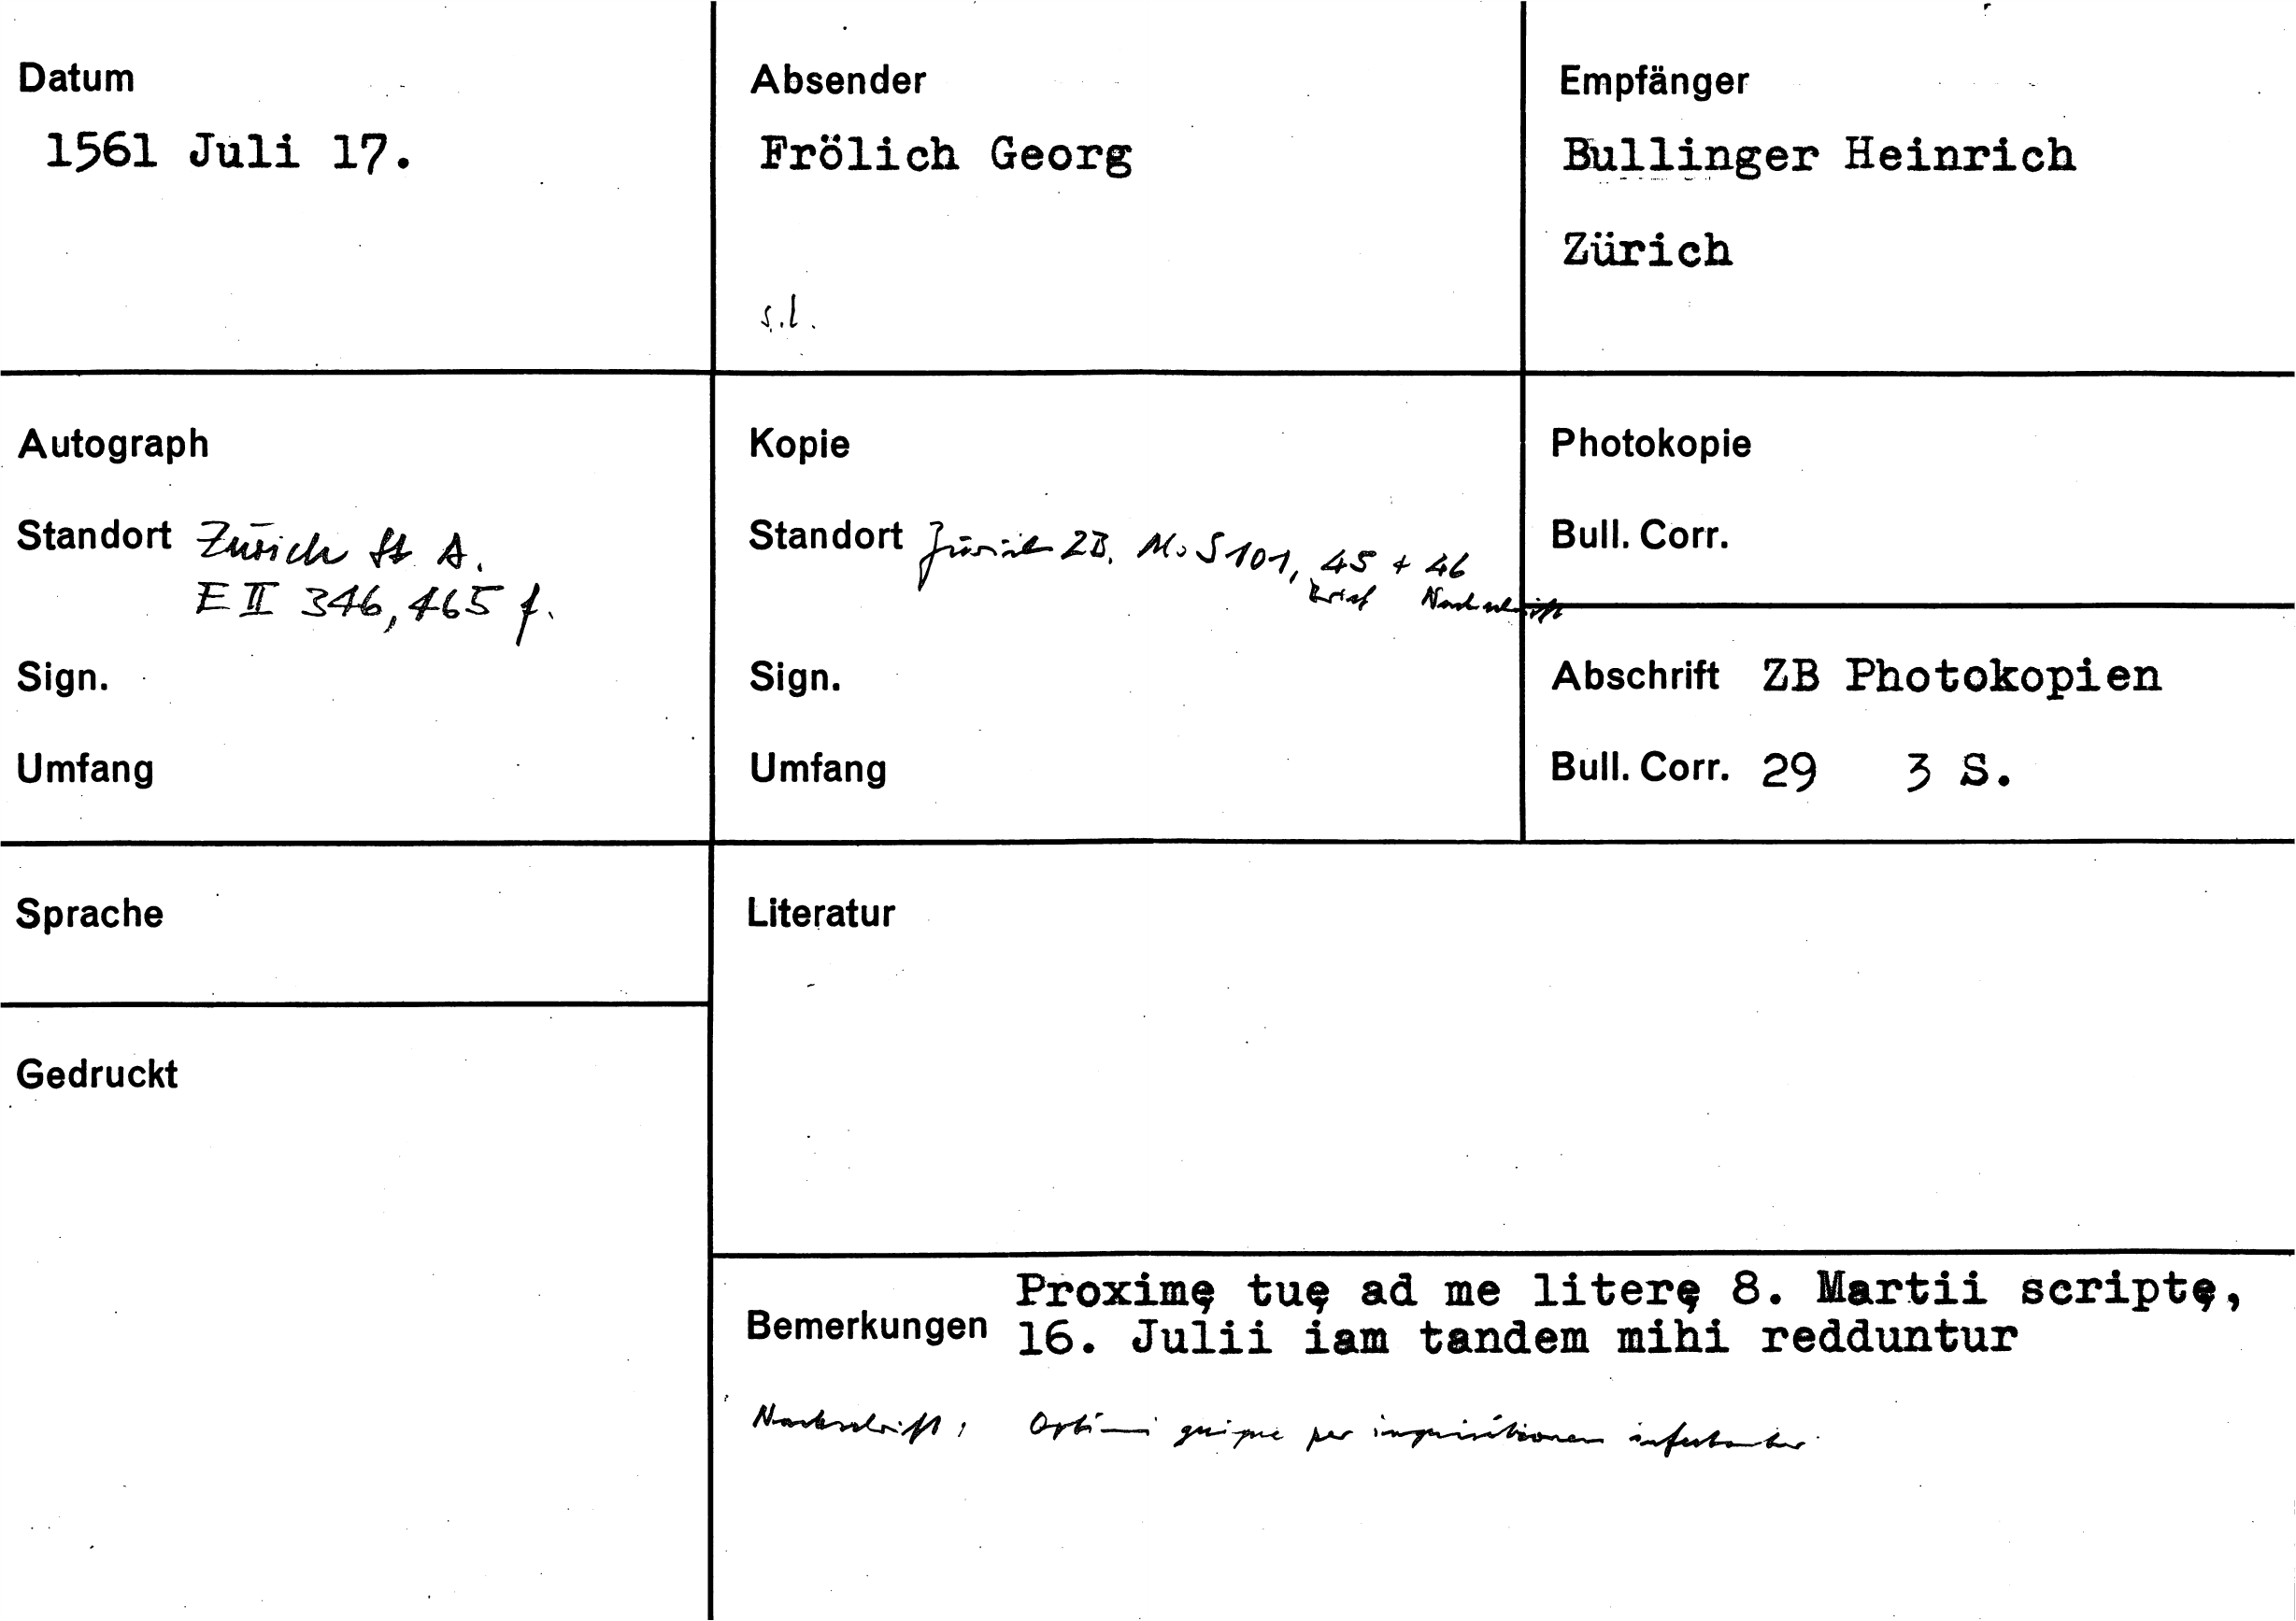 Datum
1561 Juli 17.
Absender
Frölich Georg
s.l.
Empfänger
Bullinger Heinrich
Zürich
Autograph
Standort Zürich St. A.
E II 346, 465 f.
Sign.
Umfang
Kopie
Standort Zürich ZB. Ms S 101, 45 + 46
Brief Nachschrift
Sign.
Umfang
Photokopie
Bull. Corr.
Abschrift ZB Photokopien
Bull. Corr. 29 3 S.
Sprache
Literatur
Gedruckt
Bemerkungen
Proximę tuę ad me literę 8. Martii scriptę,
16. Julii iam tandem mihi redduntur
Nachschrift: Optimi quique per inquisitionem infestantur